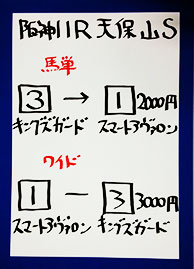 阪神11R 天保山S
馬単
3 → 1 2000円
キングズガード スマートアヴァロン
ワイド
1 ― 3 3000円
スマートアヴァロン キングズガード